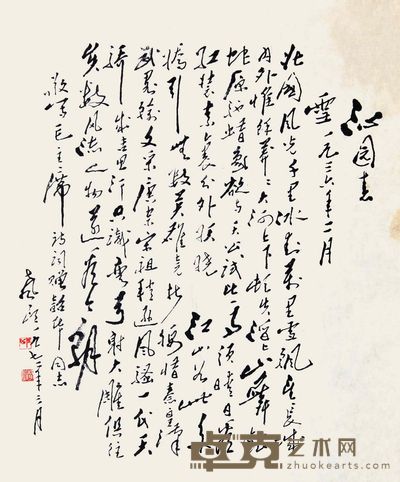 沁园春
雪 一九三六年二月
北国风光千里冰封万里雪飘望长城
内外惟馀莽莽大河上下顿失滔滔山舞银
蛇原驰蜡象欲与天公试比高须晴日看
红装素裹分外妖娆 江山如此多
娇引无数英雄竞折腰惜秦皇汉
武略输文采唐宗宋祖稍逊风骚一代天
骄成吉思汗只识弯弓射大雕俱往
矣数风流人物还看今朝
敬写毛主席诗词赠 同志
一九七二年三月
卓克艺术网
zhuokearts.com